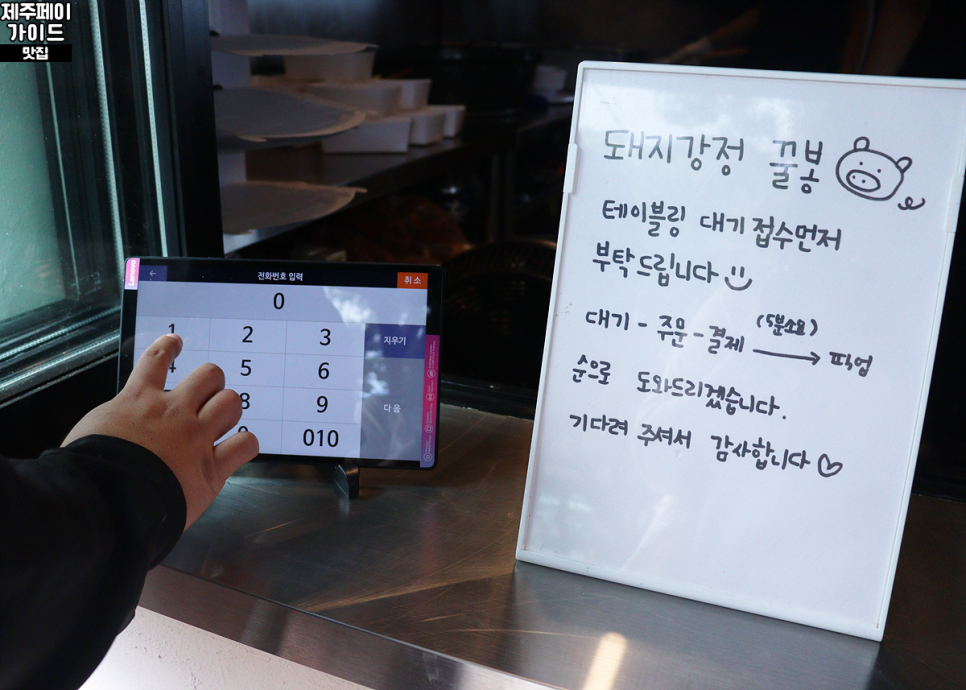 제주페이
가이드
맛집
Lenovo
전화번호 입력
취소
0
1 2 3
지우기
4 5 6
8 9
다음
0 010
돼지강정 꿀봉
테이블링 대기접수먼저
부탁드립니다
(5분소요)
대기 - 주문 - 결제 → 픽업
순으로 도와드리겠습니다.
기다려 주셔서 감사합니다♡